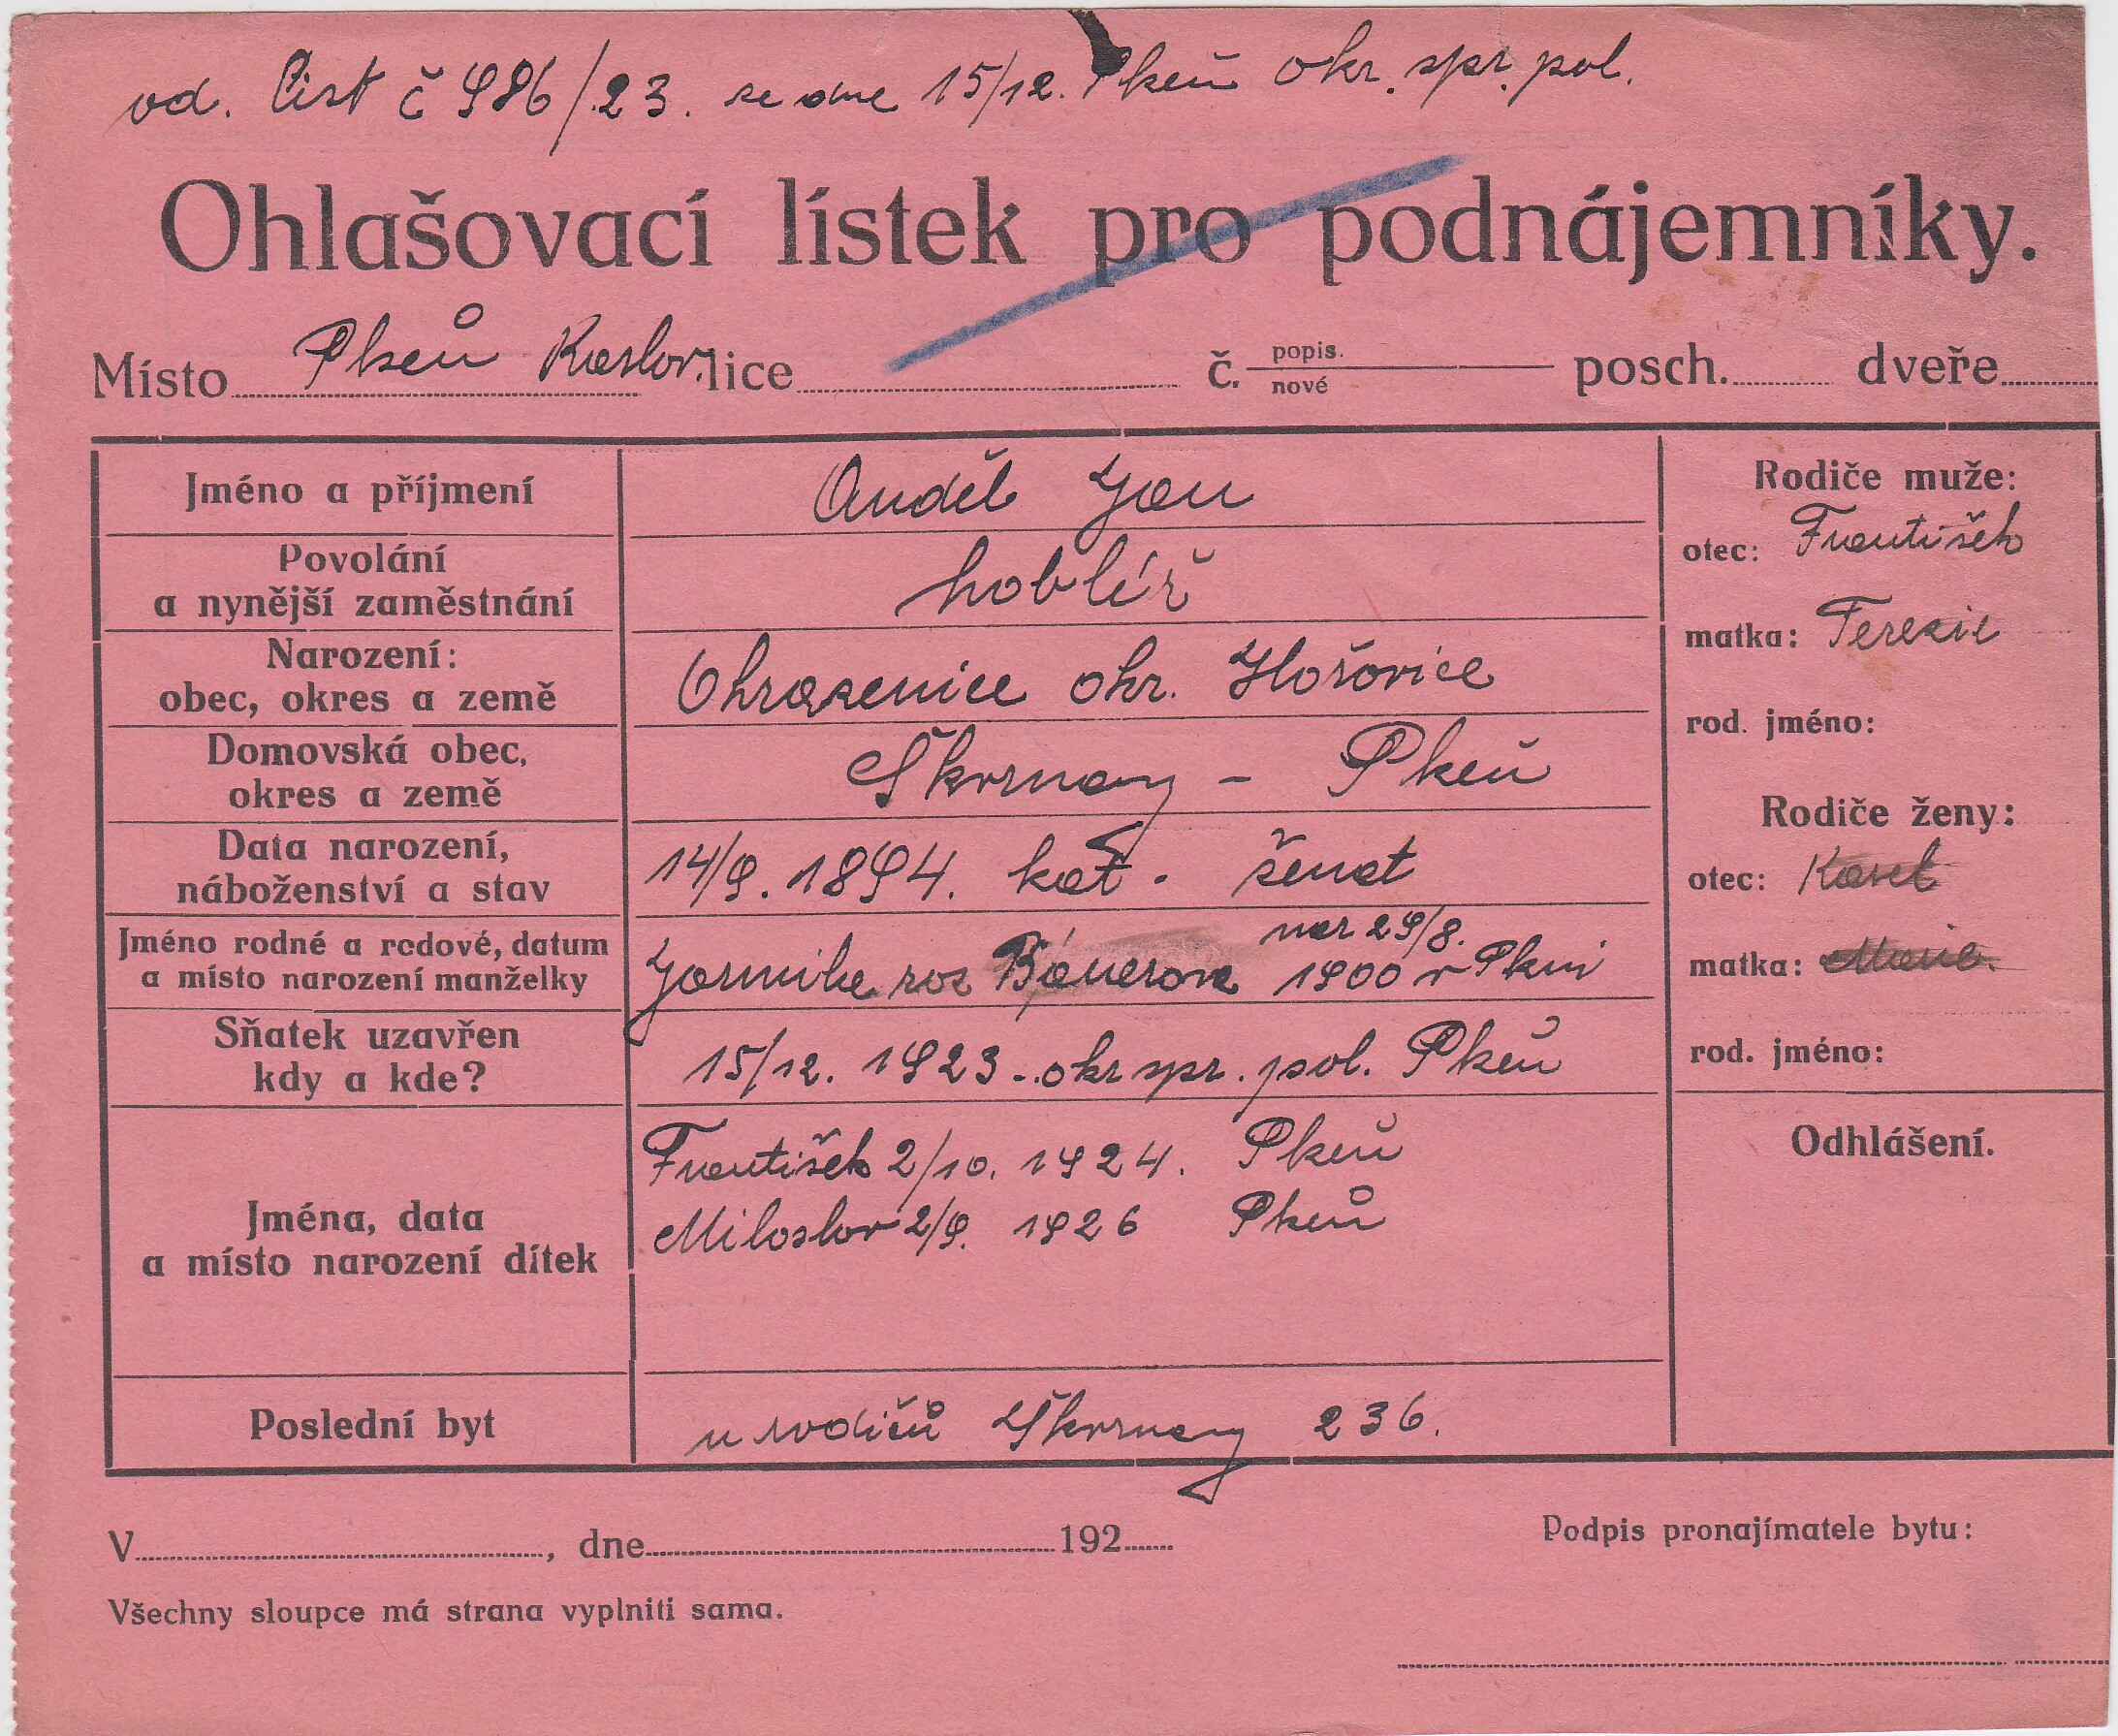 od. list č 986/23. ze dne 15/12. Plzeň okr. spr. pol.
Ohlašovací lístek pro podnájemníky.
Místo Plzeň Karlov. lice č. popis. nové posch. dveře
Jméno a příjmení Anděl Jan
Povolání
a nynější zaměstnání hoblíř
Narození:
obec, okres a země Ohrazenice okr. Hořovice
Domovská obec,
okres a země Škvrňany - Plzeň
Data narození,
náboženství a stav 14/9. 1894. kat. ženat
Jméno rodné a rodové, datum
a místo narození manželky Jarmila roz Bauerova nar 29/8. 1900 v Plzni
Sňatek uzavřen
kdy a kde? 15/12. 1923 - okr spr. pol. Plzeň
Jména, data
a místo narození dítek
František 2/10. 1924. Plzeň
Miloslav 2/9. 1926 Plzeň
Poslední byt u rodičů Škvrňany 236.
Rodiče muže:
otec: František
matka: Terezie
rod. jméno:
Rodiče ženy:
otec: Karel
matka: Marie.
rod. jméno:
Odhlášení.
V , dne 192
Podpis pronajímatele bytu:
Všechny sloupce má strana vyplniti sama.